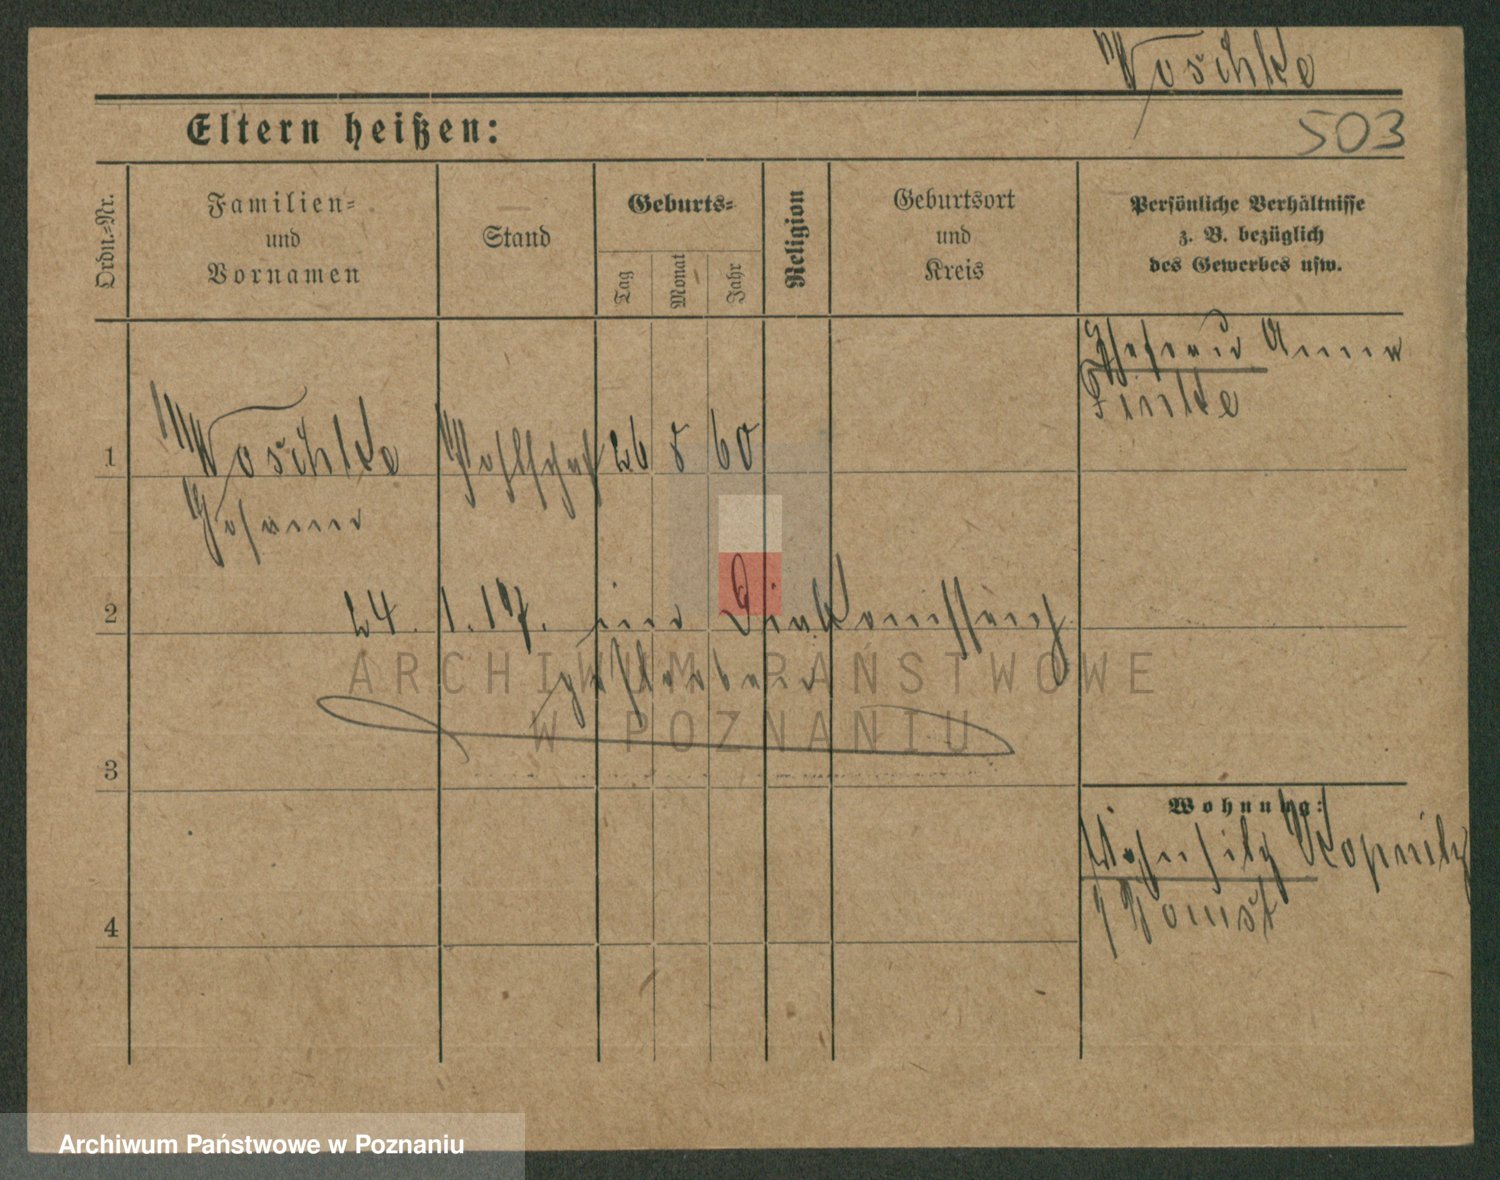 Woschke
503
Eltern heißen:
Ordn.-Nr.
Familien-
und
Vornamen
Stand
Geburts-
Tag
Monat
Jahr
Religion
Geburtsort
und
Kreis
Persönliche Verhältnisse
z. B. bezüglich
des Gewerbes usw.
Ehefrau Anna
Finke
1
Woschke
26 8 60
Johann
2
24. 1. 17. im
gestorben
ARCHIWUM PAŃSTWOWE
W POZNANIU
3
Wohnung:
Wohnsitz Kopnitz
Bomst
4
Archiwum Państwowe w Poznaniu